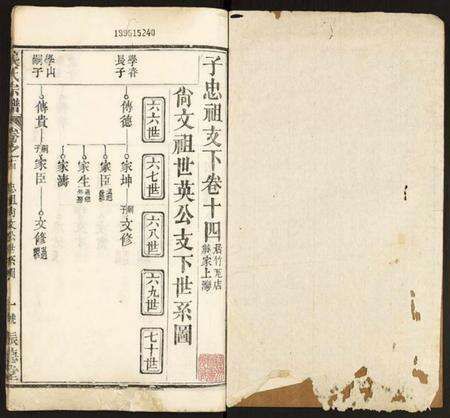 199515240
子忠祖支下卷十四 居竹瓦店
聶家上灣
尚文祖世英公支下世系圖
六六世
六七世
六八世
六九世
七十世
學春
長子
傳德
家坤
嗣子
文修
家臣
家生
家濤
學山
嗣子
傳貴
嗣子
家臣
文修
氏宗譜
卷之十四
忠祖尚文公世系圖